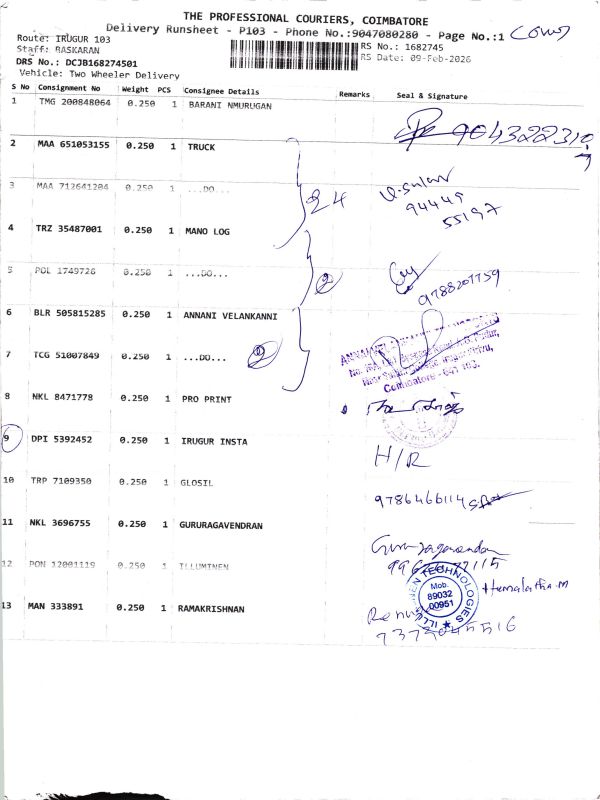 THE PROFESSIONAL COURIERS, COIMBATORE
Delivery Runsheet - P103 - Phone No.:9047080280 - Page No.:1
Route: IRUGUR 103
RS No.: 1682745
Staff: BASKARAN
RS Date: 09-Feb-2026
DRS No.: DCJB168274501
Vehicle: Two Wheeler Delivery
S No Consignment No Weight PCS Consignee Details Remarks Seal & Signature
1 TMG 200848064 0.250 1 BARANI NMURUGAN
2 MAA 651053155 0.250 1 TRUCK
3 MAA 712641204 0.250 1 ...DO...
24
94449
55197
4 TRZ 35487001 0.250 1 MANO LOG
5 POL 1749726 0.250 1 ...DO...
2
9788207759
6 BLR 505815285 0.250 1 ANNANI VELANKANNI
7 TCG 51007849 0.250 1 ...DO...
2
Coimbatore - 641 103.
8 NKL 8471778 0.250 1 PRO PRINT
9 DPI 5392452 0.250 1 IRUGUR INSTA
H/R
10 TRP 7109350 0.250 1 GLOSIL
9786466114
11 NKL 3696755 0.250 1 GURURAGAVENDRAN
12 PON 12001119 0.250 1 ILLUMINEN
ILLUMINEN TECHNOLOGIES
Mob.
89032
00951
Hemalatha.m
13 MAN 333891 0.250 1 RAMAKRISHNAN